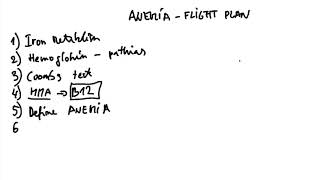 ANEMIA - FLIGHT PLAN
1) Iron Metablism
2) Hemoglobin - pathias
3) Coombs test
4) MMA → B12
5) Define ANEMIA
6